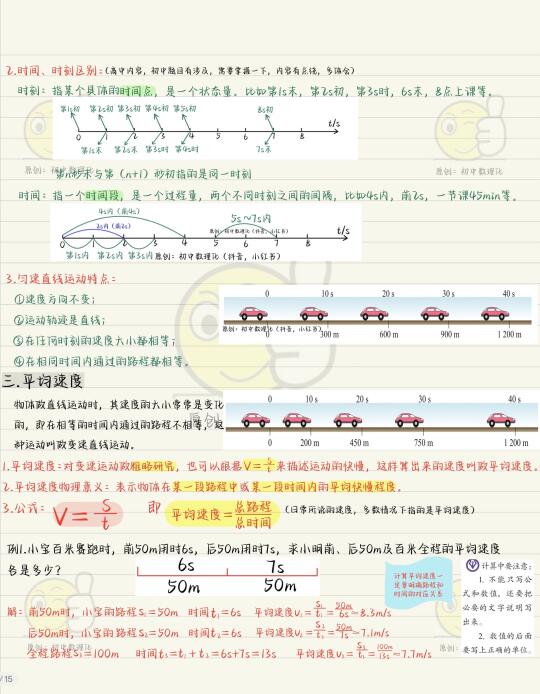 2.时间、时刻区别:(高中内容,初中题目有涉及,需要掌握一下,内容有点绕,多体会)
时刻:指某个具体的时间点,是一个状态量。比如第1s末,第2s初,第3s时,6s末,8点上课等。
第1s初 第2s初 第3s初 第4s初 第5s初 8s初
0 1 2 3 4 5 6 7 8 t/s
第1s末 第2s末 第3s时 第4s时 7s末
原创:初中数理化
原创:初中数理化
第n秒末与第(n+1)秒初指的是同一时刻
时间:指一个时间段,是一个过程量,两个不同时刻之间的间隔,比如4s内,前2s,一节课45min等。
4s内(前4s)
2s内(前2s)
5s~7s内
原创:初中数理化(抖音,小红书)
0 1 2 3 4 5 6 7 8 t/s
第1s内 第2s内 第3s内 原创:初中数理化(抖音,小红书)
3.匀速直线运动特点:
①速度方向不变;
②运动轨迹是直线;
③在任何时刻的速度大小都相等;
④在相同时间内通过的路程都相等。
0 10 s 20 s 30 s 40 s
原创:初中数理化(抖音,小红书)
0 300 m 600 m 900 m 1 200 m
三.平均速度
物体做直线运动时,其速度的大小常常是变化
的,即在相等的时间内通过的路程不相等,这
种运动叫做变速直线运动。
原创
0 10 s 20 s 30 s 40 s
0 200 m 450 m 750 m 1 200 m
1.平均速度:对变速运动做粗略研究,也可以根据V=s/t来描述运动的快慢,这样算出来的速度叫做平均速度。
2.平均速度物理意义:表示物体在某一段路程中或某一段时间内的平均快慢程度。
3.公式: V=S/t 即 平均速度=总路程/总时间 (日常所说的速度,多数情况下指的是平均速度)
例1.小宝百米赛跑时,前50m用时6s,后50m用时7s,求小明前、后50m及百米全程的平均速度
各是多少?
6s 7s
50m 50m
计算平均速度一
定要明确路程和
时间的对应关系
计算中要注意:
1. 不能只写公
式和数值,还要把
必要的文字说明写
出来。
2. 数值的后面
要写上正确的单位。
解:前50m时,小宝的路程S₁=50m 时间t₁=6s 平均速度V₁=S₁/t₁=50m/6s≈8.3m/s
后50m时,小宝的路程S₂=50m 时间t₂=6s 平均速度V₂=S₂/t₂=50m/7s≈7.1m/s
全程路程S₃=100m 时间t₃=t₁+t₂=6s+7s=13s 平均速度V₃=S₃/t₁=100m/13s≈7.7m/s
原创:初中数理化
/15